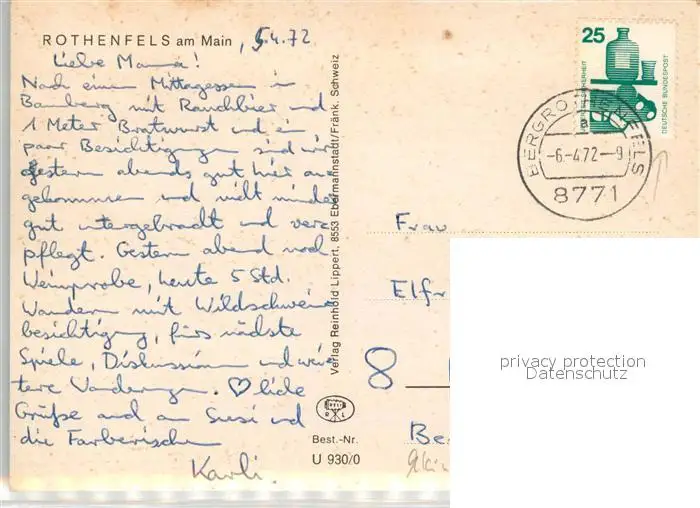 ROTHENFELS am Main , 5.4.72
Liebe Mama!
Nach einem Mittagessen in
Bamberg mit Rauchbier und
1 Meter Bratwurst und ein
paar Besichtigungen sind wir
gestern abends gut hier an
gekommen und nicht minder
gut untergebracht und ver
pflegt. Gestern abend noch
Weinprobe, heute 5 Std.
Wandern mit Wildschwein
besichtigung, fürs nächste
Spiele, Diskussion und wei
tere Wanderungen. ♡liche
Grüße and an Susi und
die Farberischen
Karli.
Verlag Reinhold Lippert, 8553 Ebermannstadt/Fränk. Schweiz
R L
Best.-Nr.
U 930/0
25
DEUTSCHE BUNDESPOST
BERGROTHENFELS
-6.-4.72-9
8771
Frau
Elfr
8
Be
privacy protection
Datenschutz